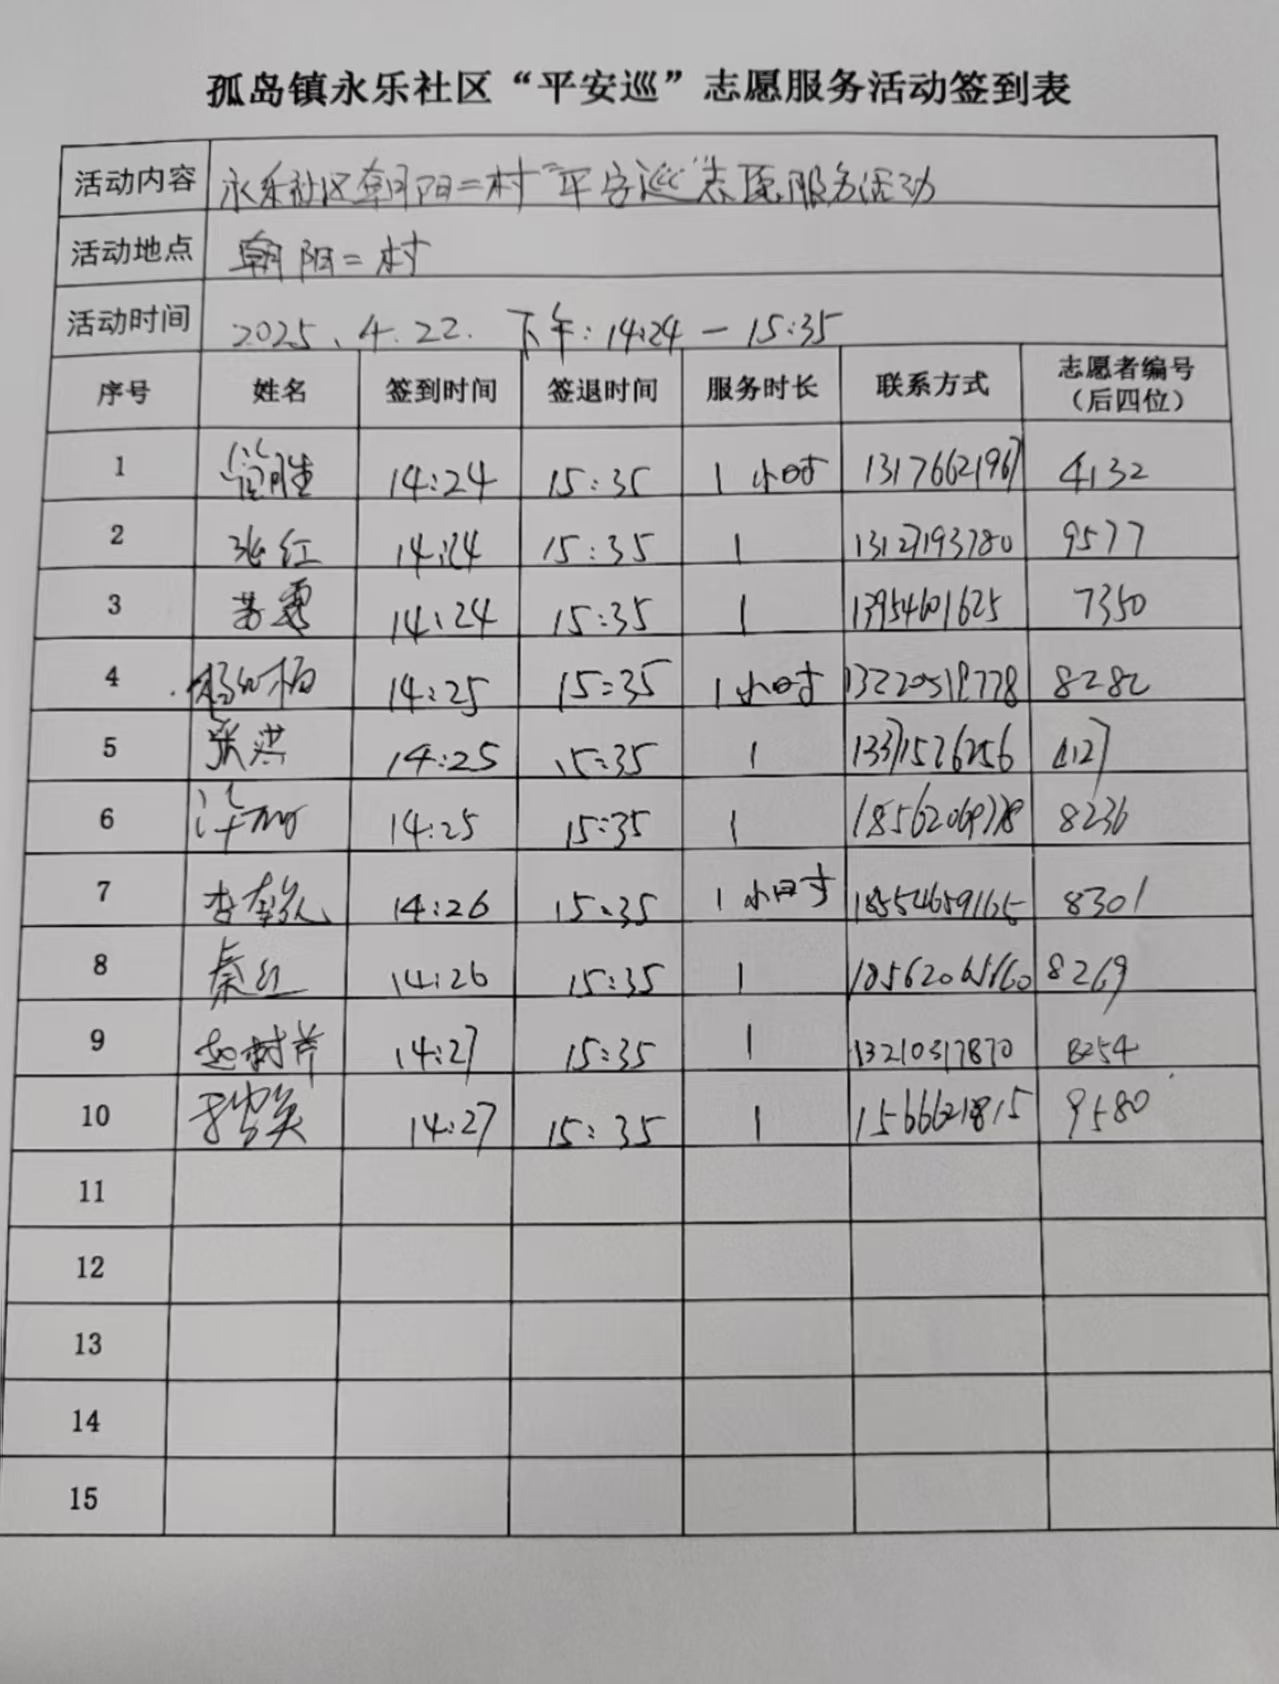 孤岛镇永乐社区“平安巡”志愿服务活动签到表
活动内容 永乐社区朝阳二村“平安巡”志愿服务活动
活动地点 朝阳二村
活动时间 2025、4.22. 下午:14:24—15:35
序号 姓名 签到时间 签退时间 服务时长 联系方式 志愿者编号（后四位）
1 14:24 15:35 1小时 13176621967 4132
2 张红 14:24 15:35 1 9577
3 苗霞 14:24 15:35 1 13954601625 7350
4 14:25 15:35 1小时 8282
5 张洪 14:25 15:35 1 13371526256 4127
6 14:25 15:35 1 8236
7 14:26 15:35 1小时 18554659165 8301
8 秦红 14:26 15:35 1 8269
9 赵树芹 14:27 15:35 1 13210317870 8254
10 14:27 15:35 1 15666218815 9580
11
12
13
14
15